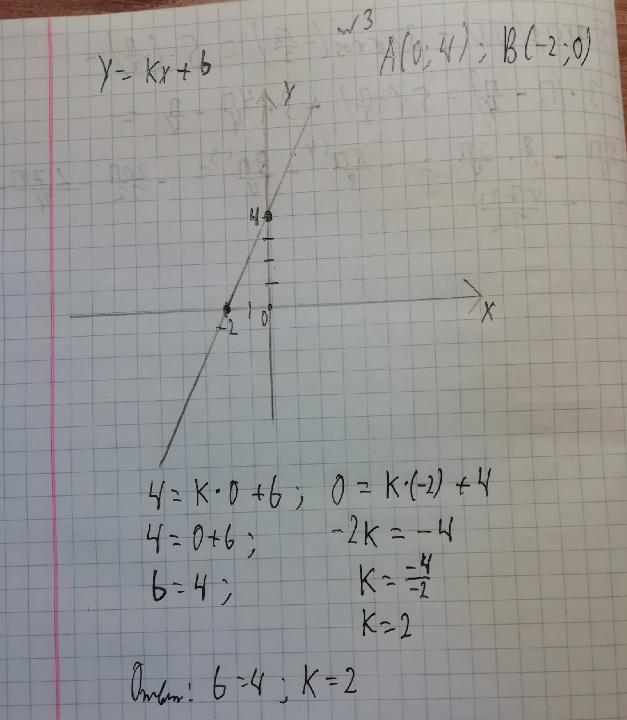 №3
y = kx + b
A(0; 4); B(-2; 0)
y
4
-2 1 0 x
4 = k·0 + b; 0 = k·(-2) + 4
4 = 0 + b; -2k = -4
b = 4; k = -4/-2
k = 2
Ответ: b = 4; k = 2